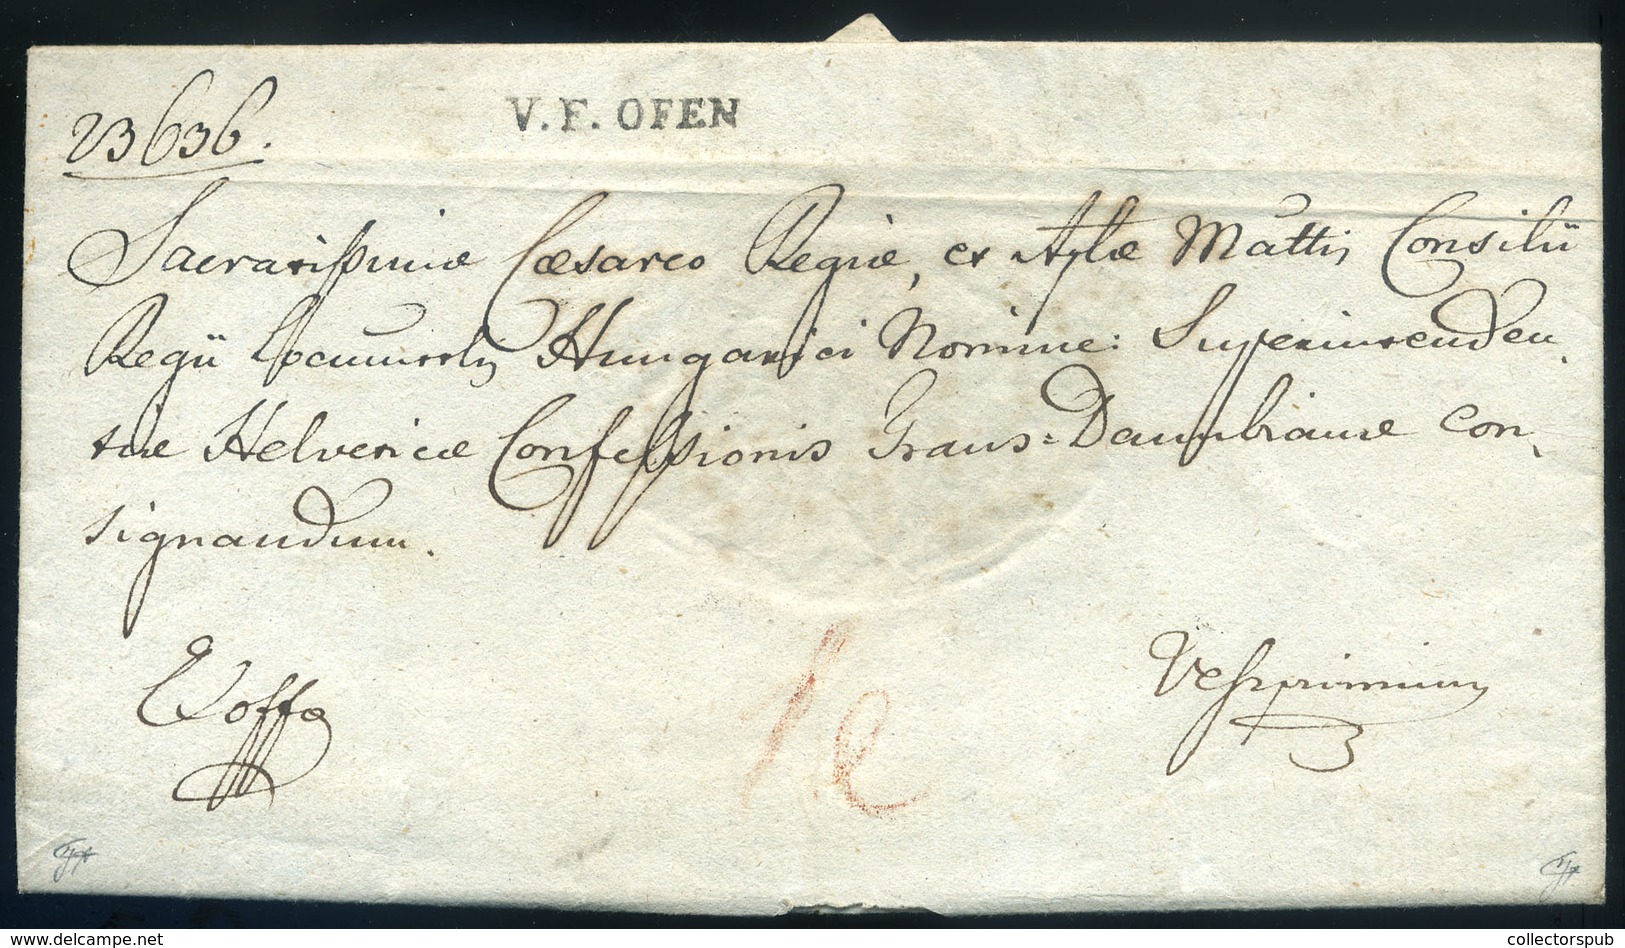 V. F. OFEN
23636.
Sacratissimae Caesareo Regiae, et Aplae Mattis Consilii
Regii Locumtrlis Hungarici Nomine: Superintenden„
tiae Helveticae Confessionis Trans=Danubianae con„
signandum.
Exoffo
Veszprimium
12
collectorspub.com